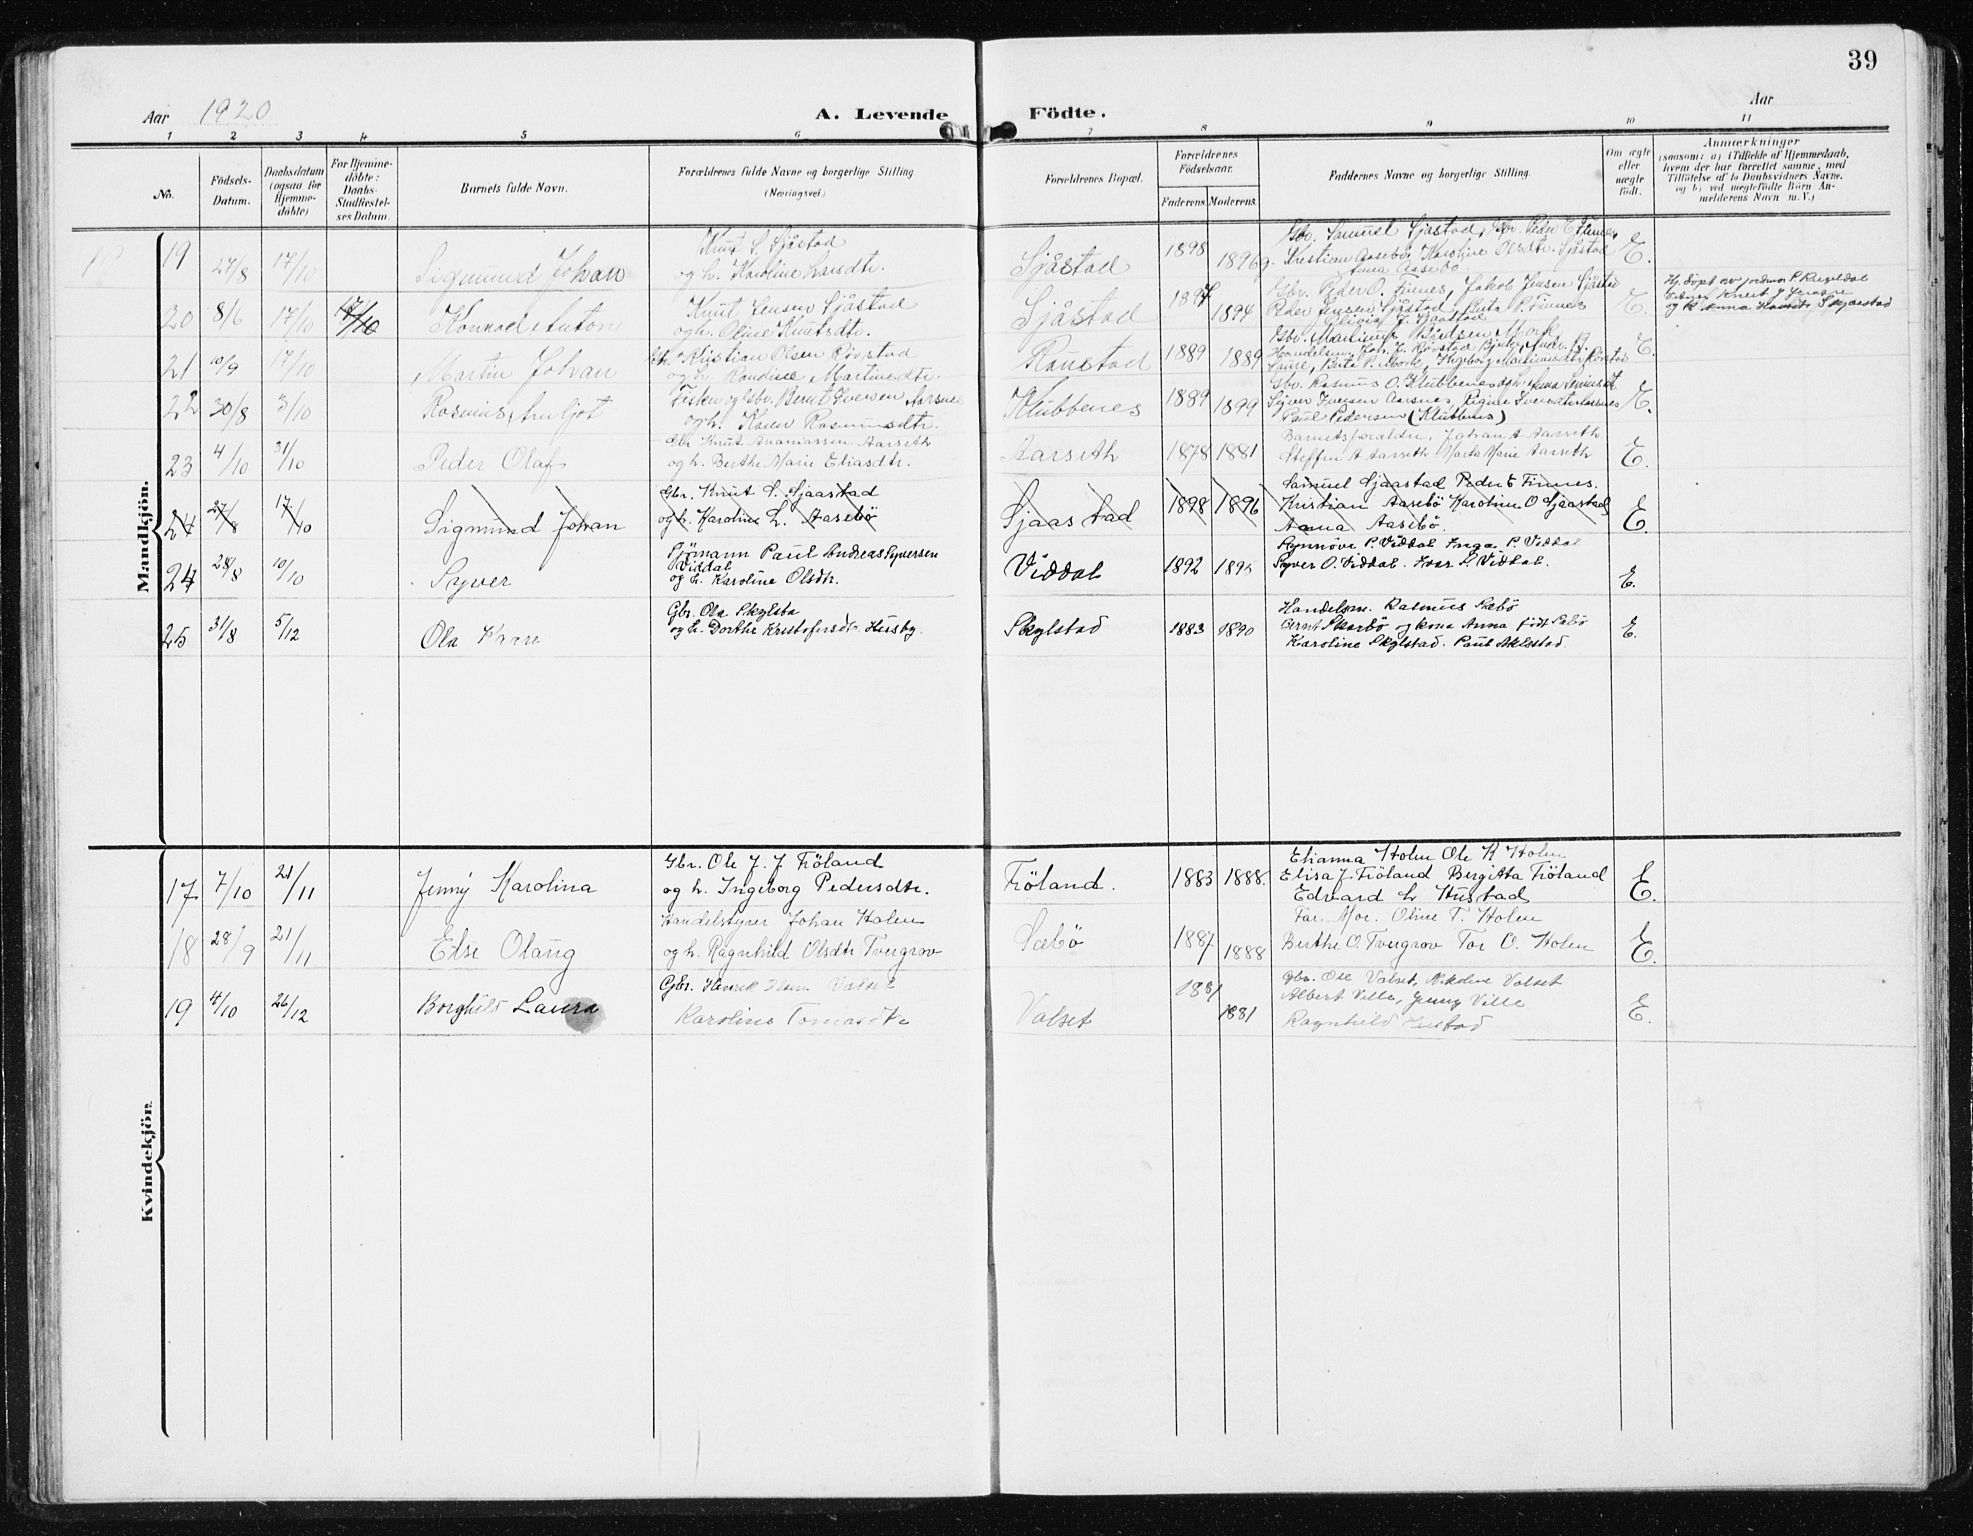 39
Aar 1920
A. Levende Fødte.
Aar
1 2 3 4 5 6 7 8 9 10 11
No.
Födsels-Datum.
Daabsdatum (ogsaa for Hjemme-döbte)
For Hjemme-döbte: Daabs-Stadfæstel-ses Datum.
Barnets fulde Navn.
Forældrenes fulde Navne og borgerlige Stilling
(Næringsvei)
Forældrenes Bopæl.
Forældrenes Födselsaar.
Faderens. Moderens.
Faddernes Navne og borgerlige Stilling.
Om ægte eller uægte födt.
Anmærkninger
(saasom: a) i Tilfælde af Hjemmedaab,
hvem der har forrettet samme, med
Tilföielse af to Daabsvidners Navne,
og b) ved uægtefödte Börn An-
melderens Navn m. V.)
Mandkjön.
19 27/8 17/10 Sigmund Johan
Knut S. Sjåstad
og h. Karoline Larsdtr.
Sjåstad 1898 1896
Gbr. Samuel Sjåstad, Gbr. Peder E Finnes,
Kristian Aasebö, Karoline Olsdtr. Sjåstad
Anna Aasebö
E.
20 8/6 17/10 17/10 Konrad Anton
Knut Jensen Sjåstad
og h. Oline Knutsdtr.
Sjåstad 1897 1894
Gbr. Peder O. Finnes, Jakob Jensen Sjåstad
Peder Jensen Sjåstad, Berta P. Finnes
Olivia J. Sjaastad
E.
21 10/9 17/10 Martin Johan
Gbr. Kristian Olsen Rövstad
og h. Randine Martinusdtr.
Raustad 1889 1889
Gbr. Martinus Bjertsen Mork
E.
22 30/8 3/10 Rasmus Arnljot
Fisker og Gbr. Bernt Iversen Aarsnes
og h. Karen Rasmusdtr.
Klubbenes 1889 1899
Gbr. Rasmus O. Klubbenes og h.
Syver Iversen Aarsnes,
Paul Pedersen (Klubbenes)
E.
23 4/10 31/10 Peder Olaf
Gbr Knut Ananiassen Aarseth
og h. Berthe Marie Eliasdtr.
Aarseth 1878 1881
Barnets forældre, Johan A Aarseth
Steffen A Aarseth Marta Marie Aarseth
E.
24 27/8 17/10 Sigmund Johan
Gbr. Knut S. Sjaastad
og h. Karoline L. Aasebö
Sjaastad 1898 1896
Samuel Sjaastad Peder E Finnes.
Kristian Aasebö Karoline O Sjaastad
Anna Aasebö.
E.
24 28/8 10/10 Syver
Sjömann Paul Andreas Syversen
Viddal
og h. Karoline Olsdtr.
Viddal 1892 1895
Synnöve P. Viddal Inga P. Viddal
Syver O. Viddal. Ivar P. Viddal.
E.
25 31/8 5/12 Ola Kåre
Gbr. Ola Skylstad
og h. Dorthe Kristofersdtr Husby.
Skylstad 1883 1890
Handelsm. Rasmus Sæbö
Bernt Skarbö og kona Anna född Sæbö
Karoline Skylstad. Paul Aklestad.
E.
Kvindekjön
17 7/10 21/11 Jenny Karolina
Gbr. Ole J. J Fröland
og h. Ingeborg Pedersdtr.
Fröland. 1883 1888.
Elianna Holen Ole K Holen
Elisa J. Fröland Bergitta Fröland
Edvard L Hustad
E.
18 28/9 21/11 Else Olaug
Handelstyrer Johan Holen
og h. Ragnhild Olsdtr Tvergrov
Sæbö 1887 1888
Far. Mor. Oline T. Holen
Berthe O. Tvergrov Tor O. Holen
E.
19 4/10 26/12 Borghild Laura
Gbr. Henrik Valset
Karoline Tomasdtr
Valset 1881 1881
Gbr. Ole Valset, Nikoline Valset
Albert Ville, Jenny Ville
Ragnhild Hustad
E.